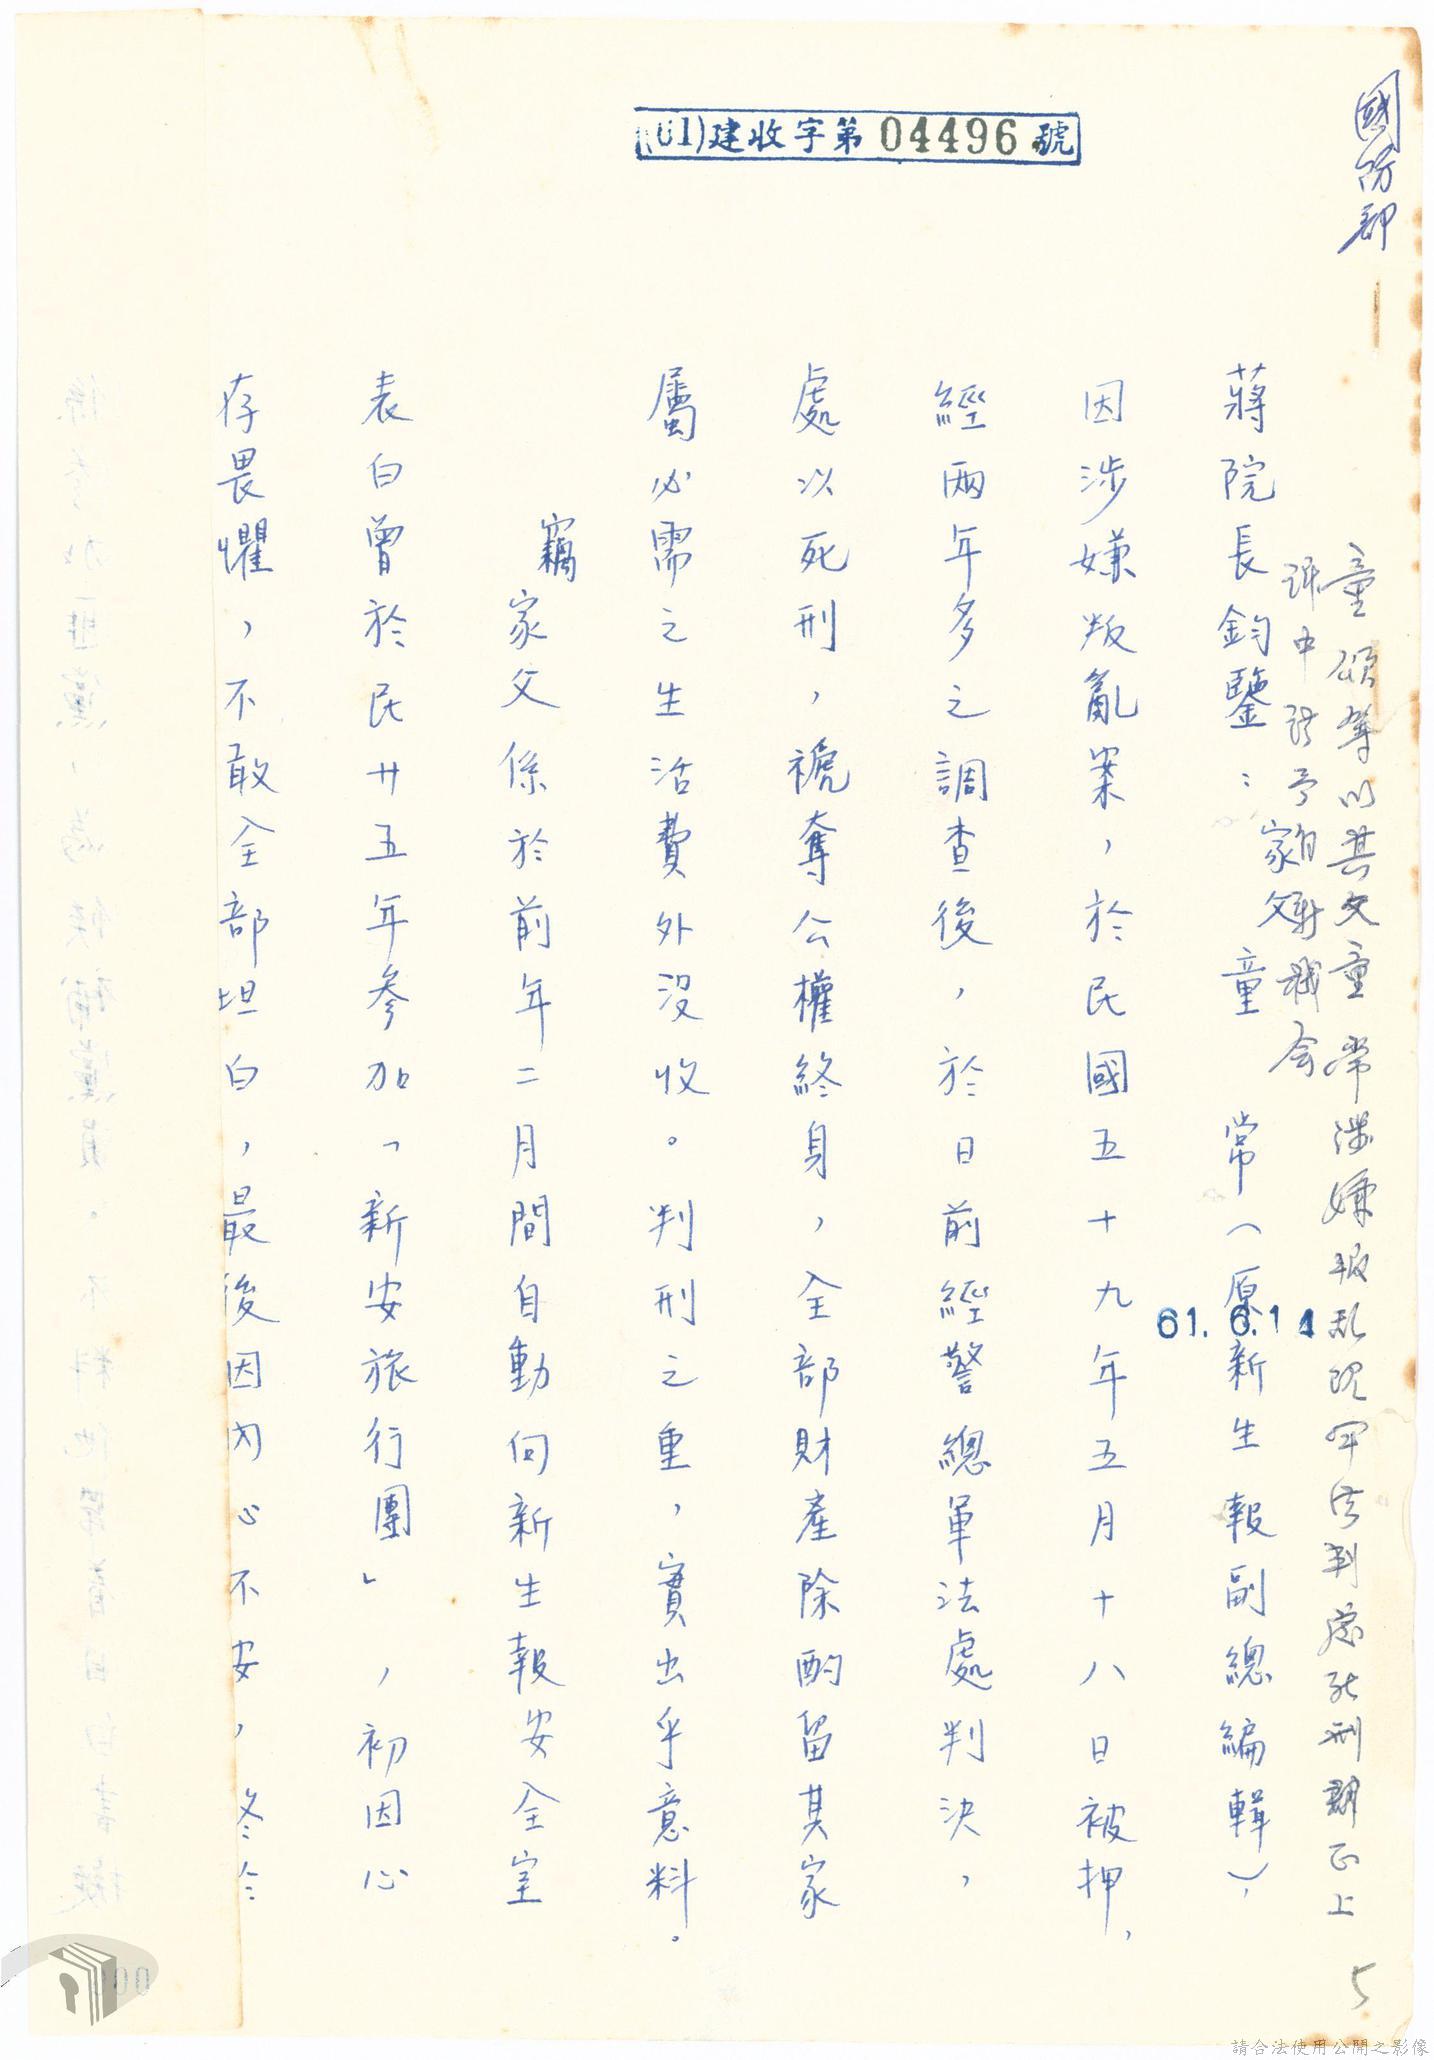 國防部
(61)建收字第 04496 號
童頌等以其父童常涉嫌叛亂現軍法判處死刑群正上
訴中請予自新機會
蔣院長鈞鑒：家父童常（原新生報副總編輯），
61. 6. 14
因涉嫌叛亂案，於民國五十九年五月十八日被押，
經兩年多之調查後，於日前經警總軍法處判決，
處以死刑，褫奪公權終身，全部財產除酌留其家
屬必需之生活費外沒收。判刑之重，實出乎意料。
竊家父係於前年二月間自動向新生報安全室
表白曾於民廿五年參加「新安旅行團」，初因心
存畏懼，不敢全部坦白，最後因內心不安，終於
5
請合法使用公開之影像